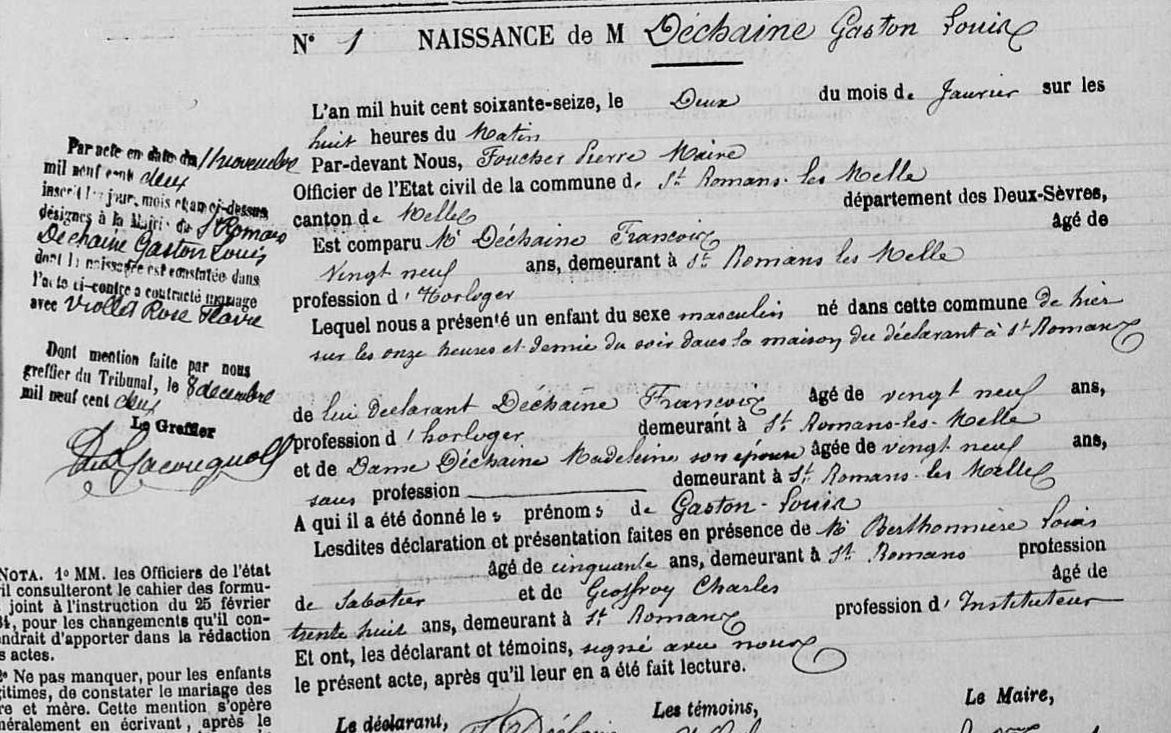 N° 1 NAISSANCE de M Déchaine Gaston Louis
L'an mil huit cent soixante-seize, le Deux du mois de Janvier sur les
huit heures du Matin
Par-devant Nous, Foucher Pierre Maire
Officier de l'Etat civil de la commune de St Romans-les Melle
canton de Melle département des Deux-Sèvres,
Est comparu Mr Déchaine Francois âgé de
Vingt neuf ans, demeurant à St Romans les Melle
profession d'Horloger
Lequel nous a présenté un enfant du sexe masculin né dans cette commune de hier
sur les onze heures et demie du soir dans la maison du déclarant à St Romans
de lui déclarant Déchaine Francois âgé de vingt neuf ans,
profession d'horloger demeurant à St Romans-les-Melle
et de Dame Déchaine Madeleine son épouse âgée de vingt neuf ans,
sans profession demeurant à St Romans-les Melle
A qui il a été donné les prénoms de Gaston-Louis
Lesdites déclaration et présentation faites en présence de Mr Berthonnière Louis
âgé de cinquante ans, demeurant à St Romans profession
de Sabotier et de Geoffroy Charles âgé de
trente huit ans, demeurant à St Romans profession d'Instituteur
Et ont, les déclarant et témoins, signé avec nous
le présent acte, après qu'il leur en a été fait lecture.
Le déclarant, Les témoins, Le Maire,
Par acte en date du 11 novembre
mil neuf cent deux
inscrit les jour, mois et an ci-dessus
désignés à la Mairie de St Romans
Déchaine Gaston Louis
dont la naissance est constatée dans
l'acte ci-contre a contracté mariage
avec Viollet Rose Flavie
Dont mention faite par nous
greffier du Tribunal, le 8 décembre
mil neuf cent deux
Le Greffier
NOTA. 1° MM. les Officiers de l'état
il consulteront le cahier des formu-
joint à l'instruction du 25 février
, pour les changements qu'il con-
ndrait d'apporter dans la rédaction
s actes.
2° Ne pas manquer, pour les enfants
gitimes, de constater le mariage des
re et mère. Cette mention s'opère
néralement en écrivant, après le